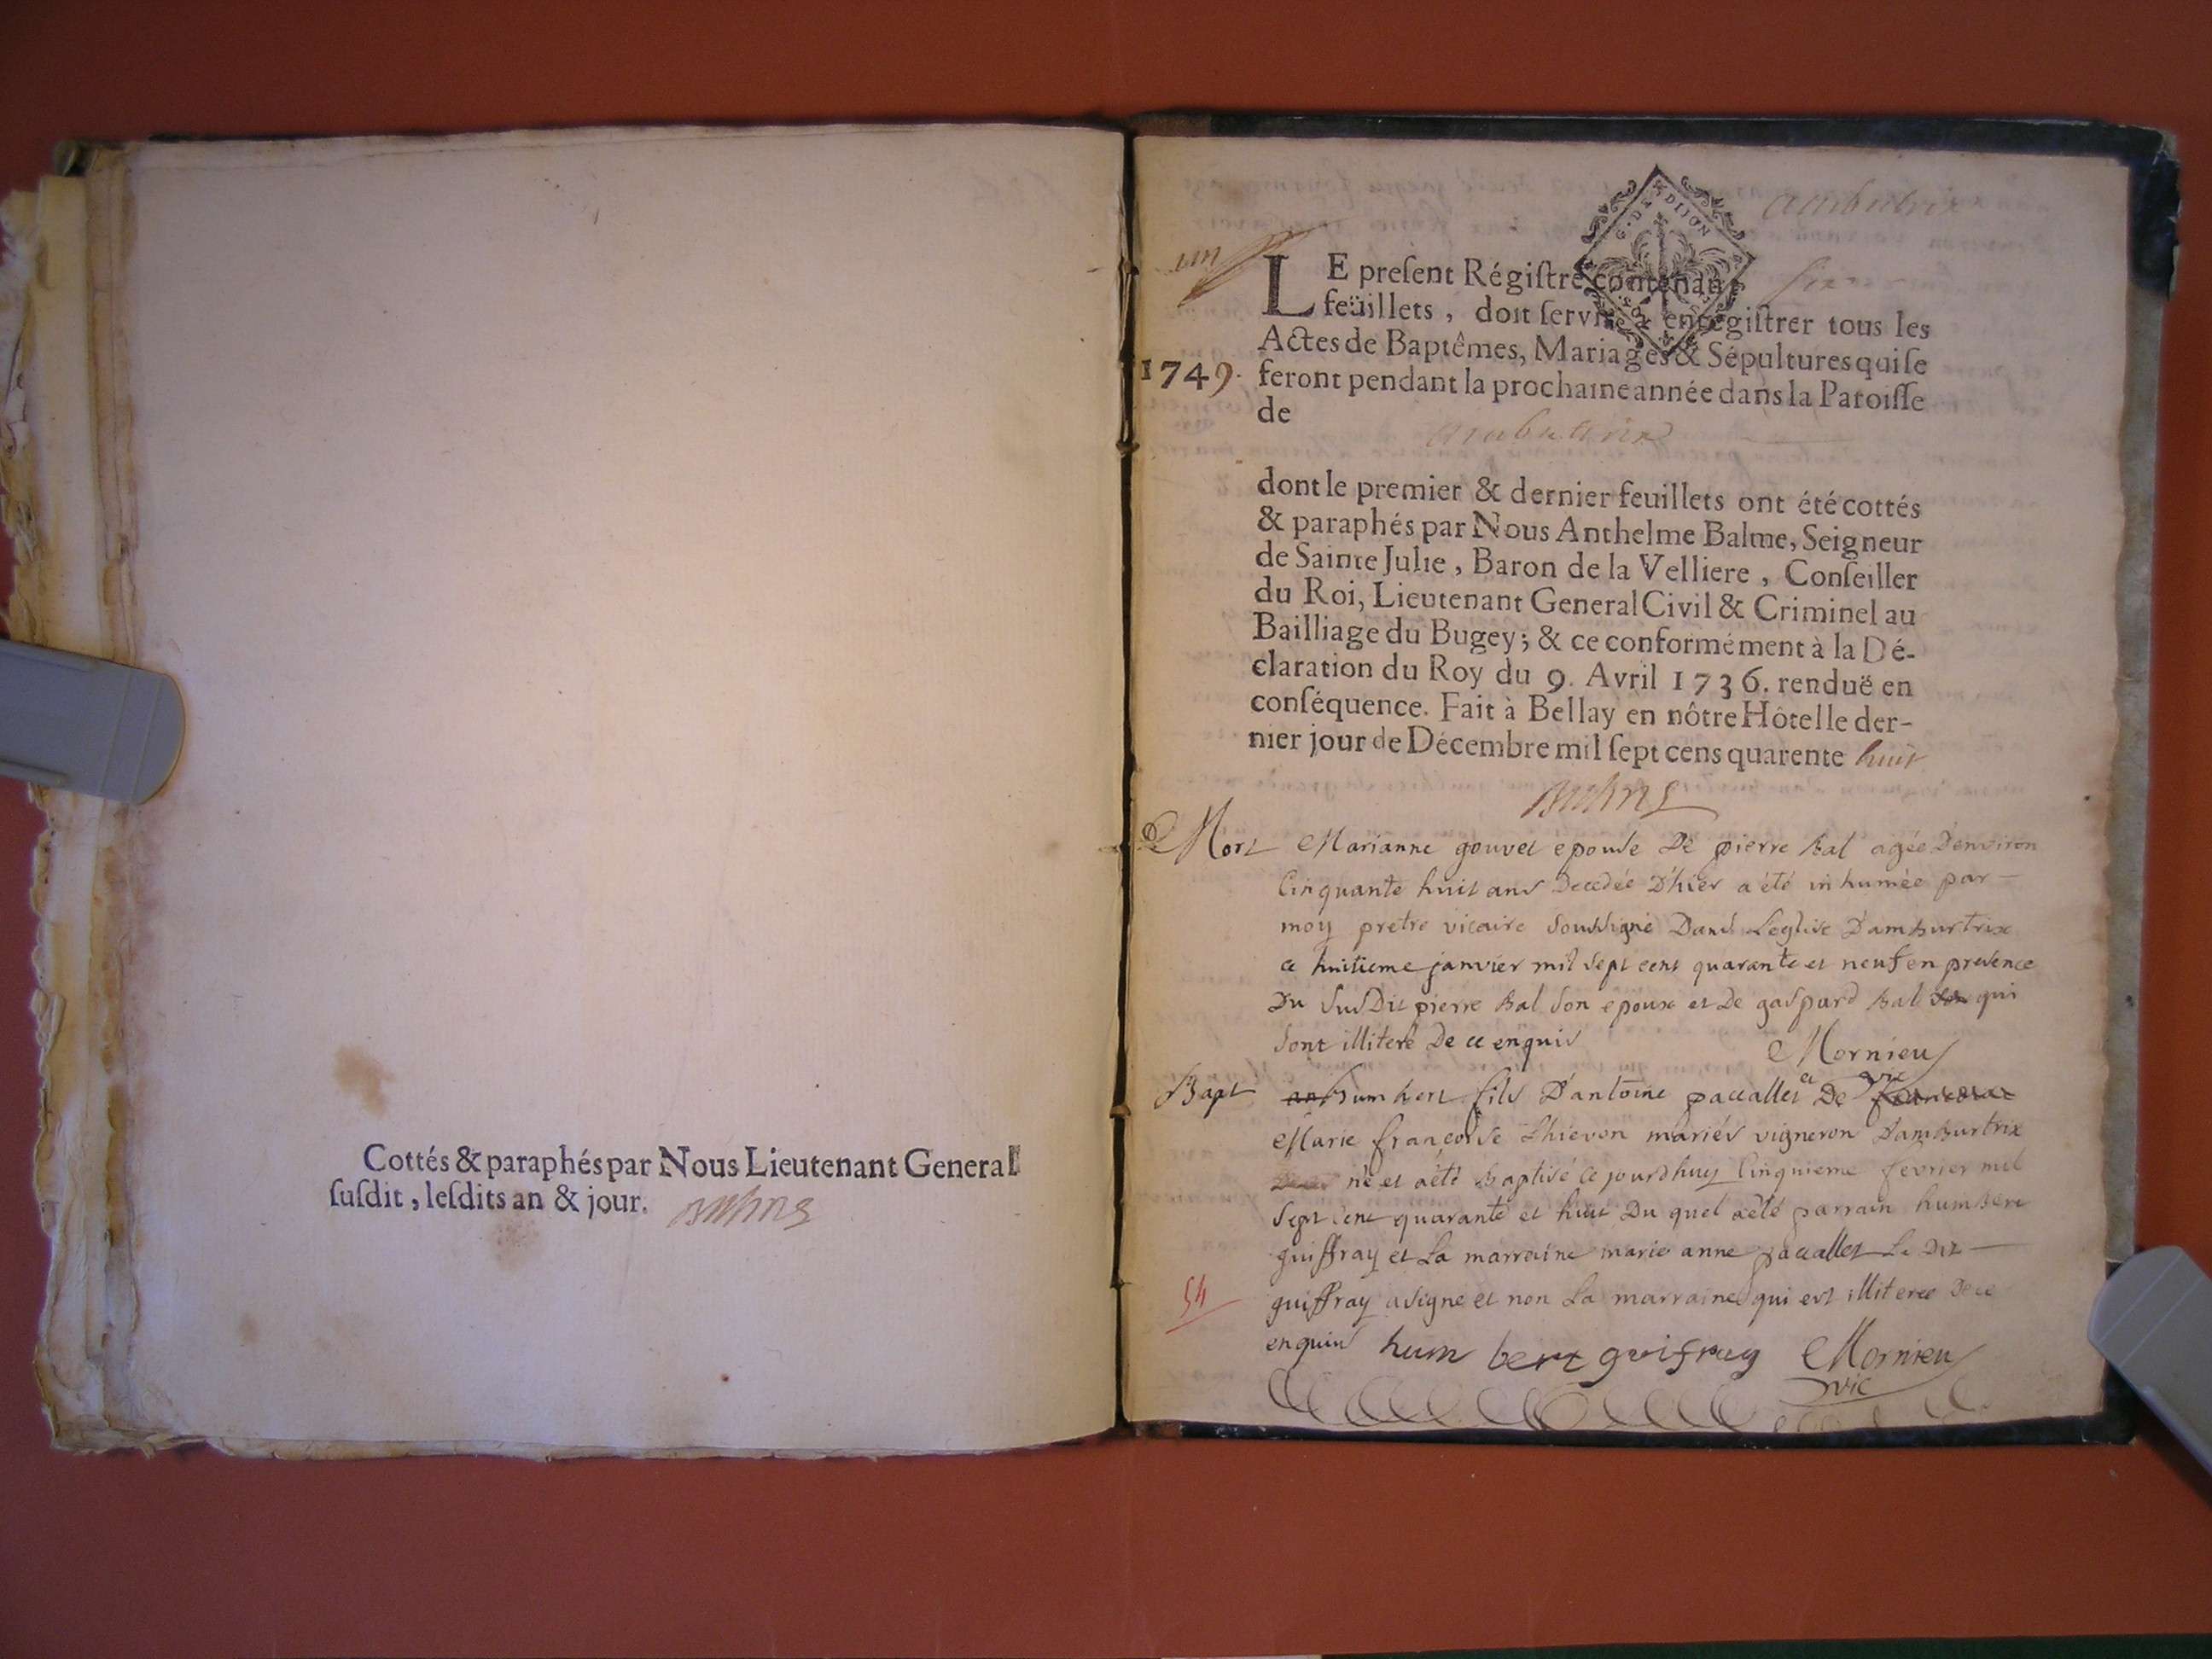 Cottés & paraphés par Nous Lieutenant General
ſuſdit, leſdits an & jour.
G. D. DIJON
ambutrix
LE preſent Régiſtre contenant
feüillets, doit ſervir à enregiſtrer tous les
Actes de Baptêmes, Mariages & Sépultures qui ſe
1749. feront pendant la prochaine année dans la Paroiſſe
de
ambutrix
dont le premier & dernier feuillets ont été cottés
& paraphés par Nous Anthelme Balme, Seigneur
de Sainte Julie, Baron de la Velliere, Conſeiller
du Roi, Lieutenant General Civil & Criminel au
Bailliage du Bugey; & ce conformément à la Dé-
claration du Roy du 9. Avril 1736. renduë en
conſéquence. Fait à Bellay en nôtre Hôtel le der-
nier jour de Décembre mil ſept cens quarente huit
Mort Marianne gouvet epouse De pierre Bal agée D'environ
Cinquante huit ans Decedée D'hier a été inhumée par
moy pretre vicaire Soussigné Dans L'eglise D'amburtrix
ce huitieme janvier mil sept cent quarante et neuf en presence
Du susDit pierre Bal Son epoux et De gaspard Bal qui
Sont illiteré De ce enquis Mornieu
vic
Bapt humbert fils D'antoine paccallet et De
Marie françoise Thievon mariés vigneron D'amburtrix
né et a été Baptisé ce jourdhuy Cinquieme fevrier mil
Sept cent quarante et huit Du quel a été parrain humbert
guiffray et La marraine marie anne paccallet Le Dit
54 guiffray a signé et non La marraine qui est illiteree De ce
enquis hum bert guifray Mornieu
vic